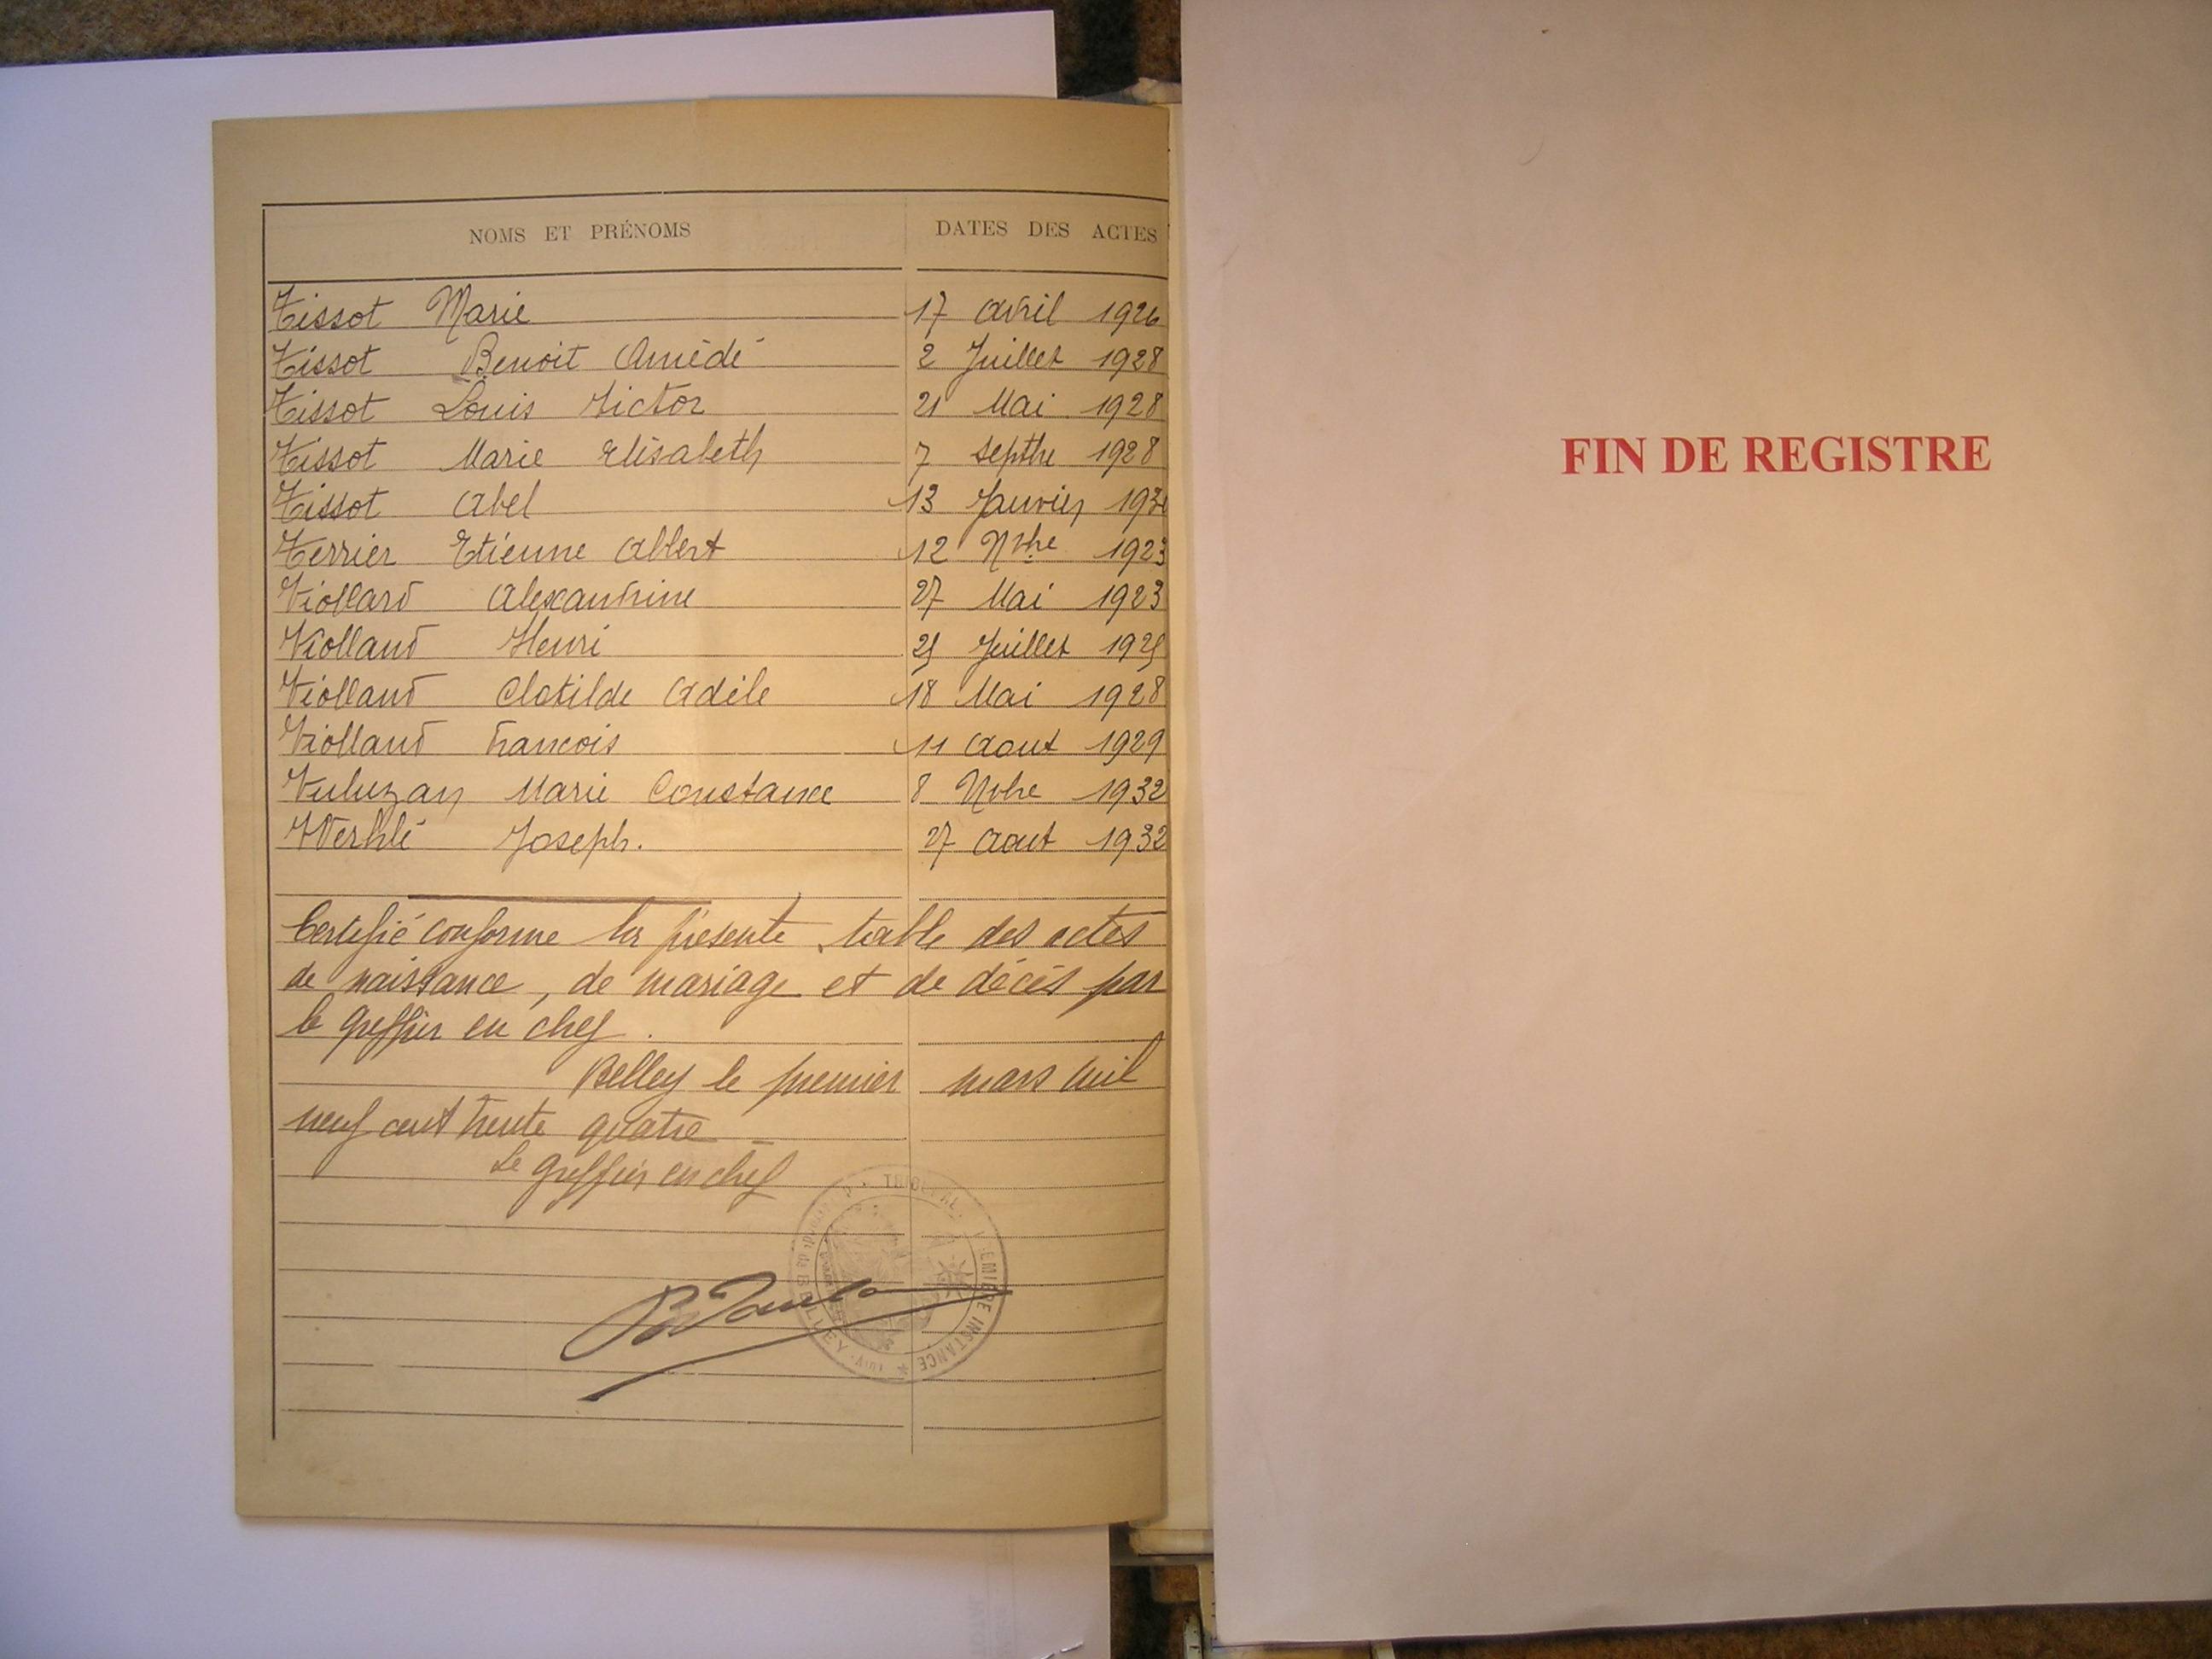 NOMS ET PRÉNOMS DATES DES ACTES
Tissot Marie 17 avril 1926
Tissot Benoit Amédé 2 Juillet 1928
Tissot Louis Victor 21 Mai 1928
Tissot Marie Elisabeth 7 septbre 1928
Tissot Abel 13 Janvier
Terrier Etienne Albert 12 Nvbre 1923
Viollard Alexandrine 27 Mai 1923
Violland Henri 25 Juillet 1925
Violland Clotilde Adèle 18 Mai 1928
Violland Francois 11 Aout 1929
Marie Constance 8 Nvbre 1932
Joseph. 27 Aout 1932
Certifié conforme la présente table des actes
de naissance, de mariage et de décès par
le greffier en chef.
Belley le premier mars mil
neuf cent trente quatre
Le greffier en chef
TRIBUNAL PREMIERE INSTANCE * BELLEY (Ain) *
FIN DE REGISTRE